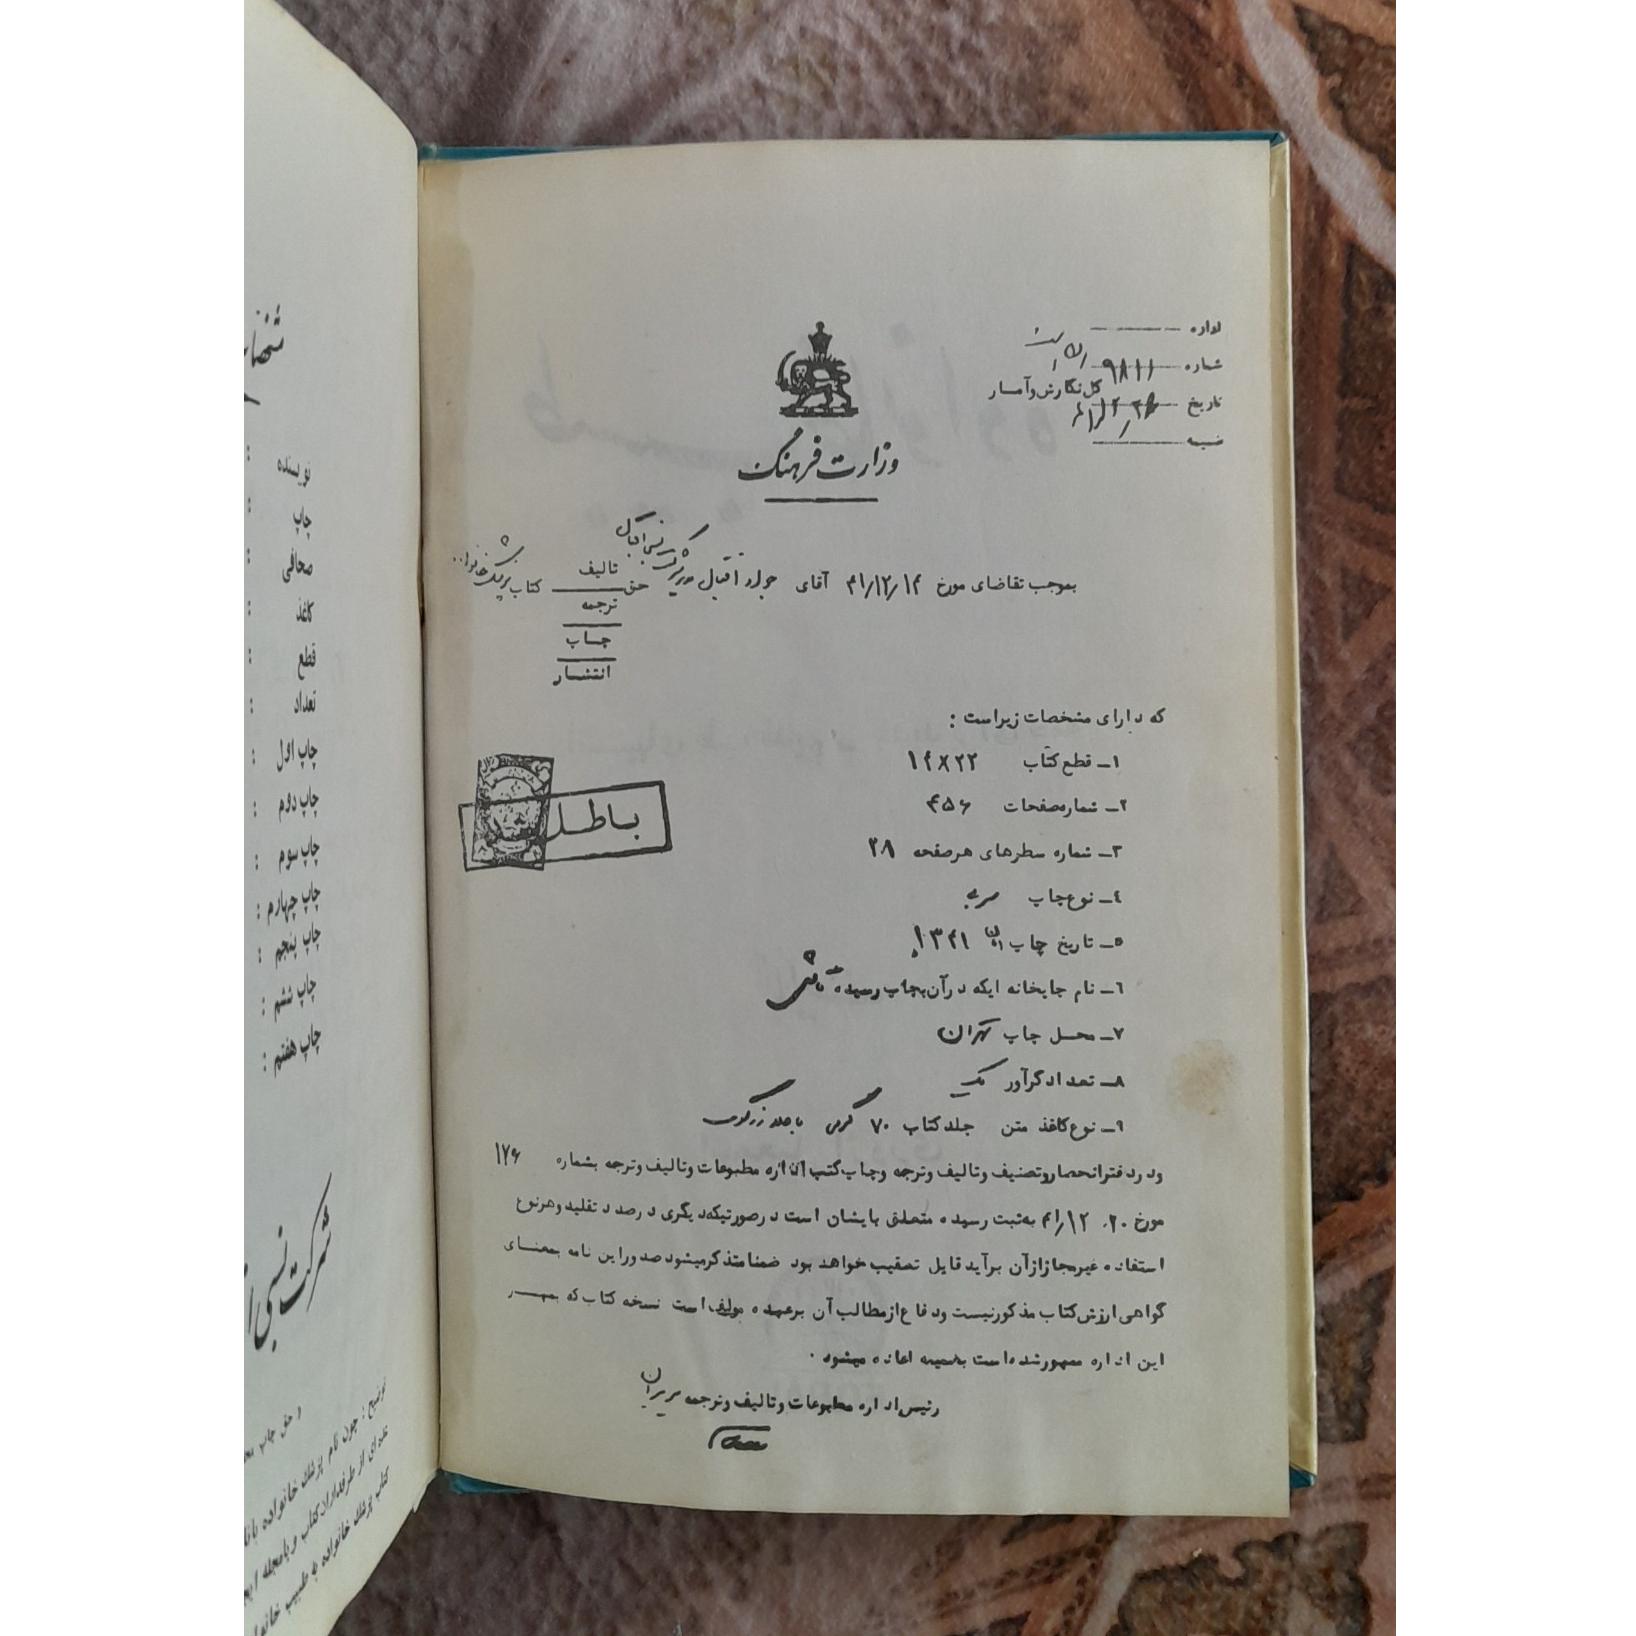 اداره
شماره ۹۸۱۱
کل نگارش و آمار
تاریخ
ضمیمه
وزارت فرهنگ
بموجب تقاضای مورخ ۴۱/۱۲/۱۴ آقای جواد اقبال مدیر شرکت نسبی اقبال حق تالیف کتاب پزشک خانواده
ترجمه
چاپ
انتشار
که دارای مشخصات زیر است :
۱ـ قطع کتاب ۱۴×۲۲
۲ـ شماره صفحات ۴۵۶
۳ـ شماره سطرهای هر صفحه ۲۸
باطل شد
۴ـ نوع چاپ سربی
۵ـ تاریخ چاپ ۱۳۴۱
۶ـ نام چاپخانه ایکه در آن بچاپ رسیده
۷ـ محل چاپ تهران
۸ـ تعداد گرآور یک
۹ـ نوع کاغذ متن جلد کتاب ۷۰ گرمی با جلد زرکوب
و در دفتر انحصار و تصنیف و تالیف و ترجمه و چاپ کتب اداره مطبوعات و تالیف و ترجمه بشماره ۱۷۶
مورخ ۲۰/۱۲/۴۱ به ثبت رسیده متعلق بایشان است در صورتیکه دیگری در صدد تقلید و هر نوع
استفاده غیر مجاز از آن برآید قابل تعقیب خواهد بود ضمنا متذکر میشود صدور این نامه بمعنای
گواهی ارزش کتاب مذکور نیست و دفاع از مطالب آن بر عهده مولف است نسخه کتاب که بمهر
این اداره ممهور شده است بضمیمه اعاده میشود .
رئیس اداره مطبوعات و تالیف و ترجمه
نویسنده :
چاپ :
صحافی :
کاغذ :
قطع :
تعداد :
چاپ اول :
چاپ دوم :
چاپ سوم :
چاپ چهارم :
چاپ پنجم :
چاپ ششم :
چاپ هفتم :
شرکت نسبی
حق چاپ
توضیح : چون نام پزشک خانواده با
عده‌ای از طرفداران کتاب و یا مجله
کتاب پزشک خانواده به طبیب